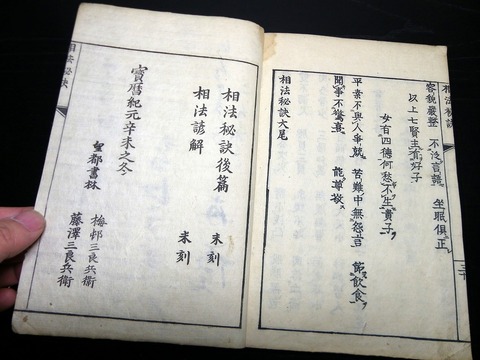 相法秘訣
容貌嚴整 不泛言語 坐眠俱正
以上七賢主有好子
女有四德何愁不生貴子
平素不與人爭競 苦難中無怨言 節飲食
聞事不驚喜 能尊敬
相法秘訣大尾
相法秘訣後篇 未刻
相法諺解 未刻
寳曆紀元辛未之冬
皇都書林
梅邨三良兵衛
藤澤三良兵衛
相法秘訣